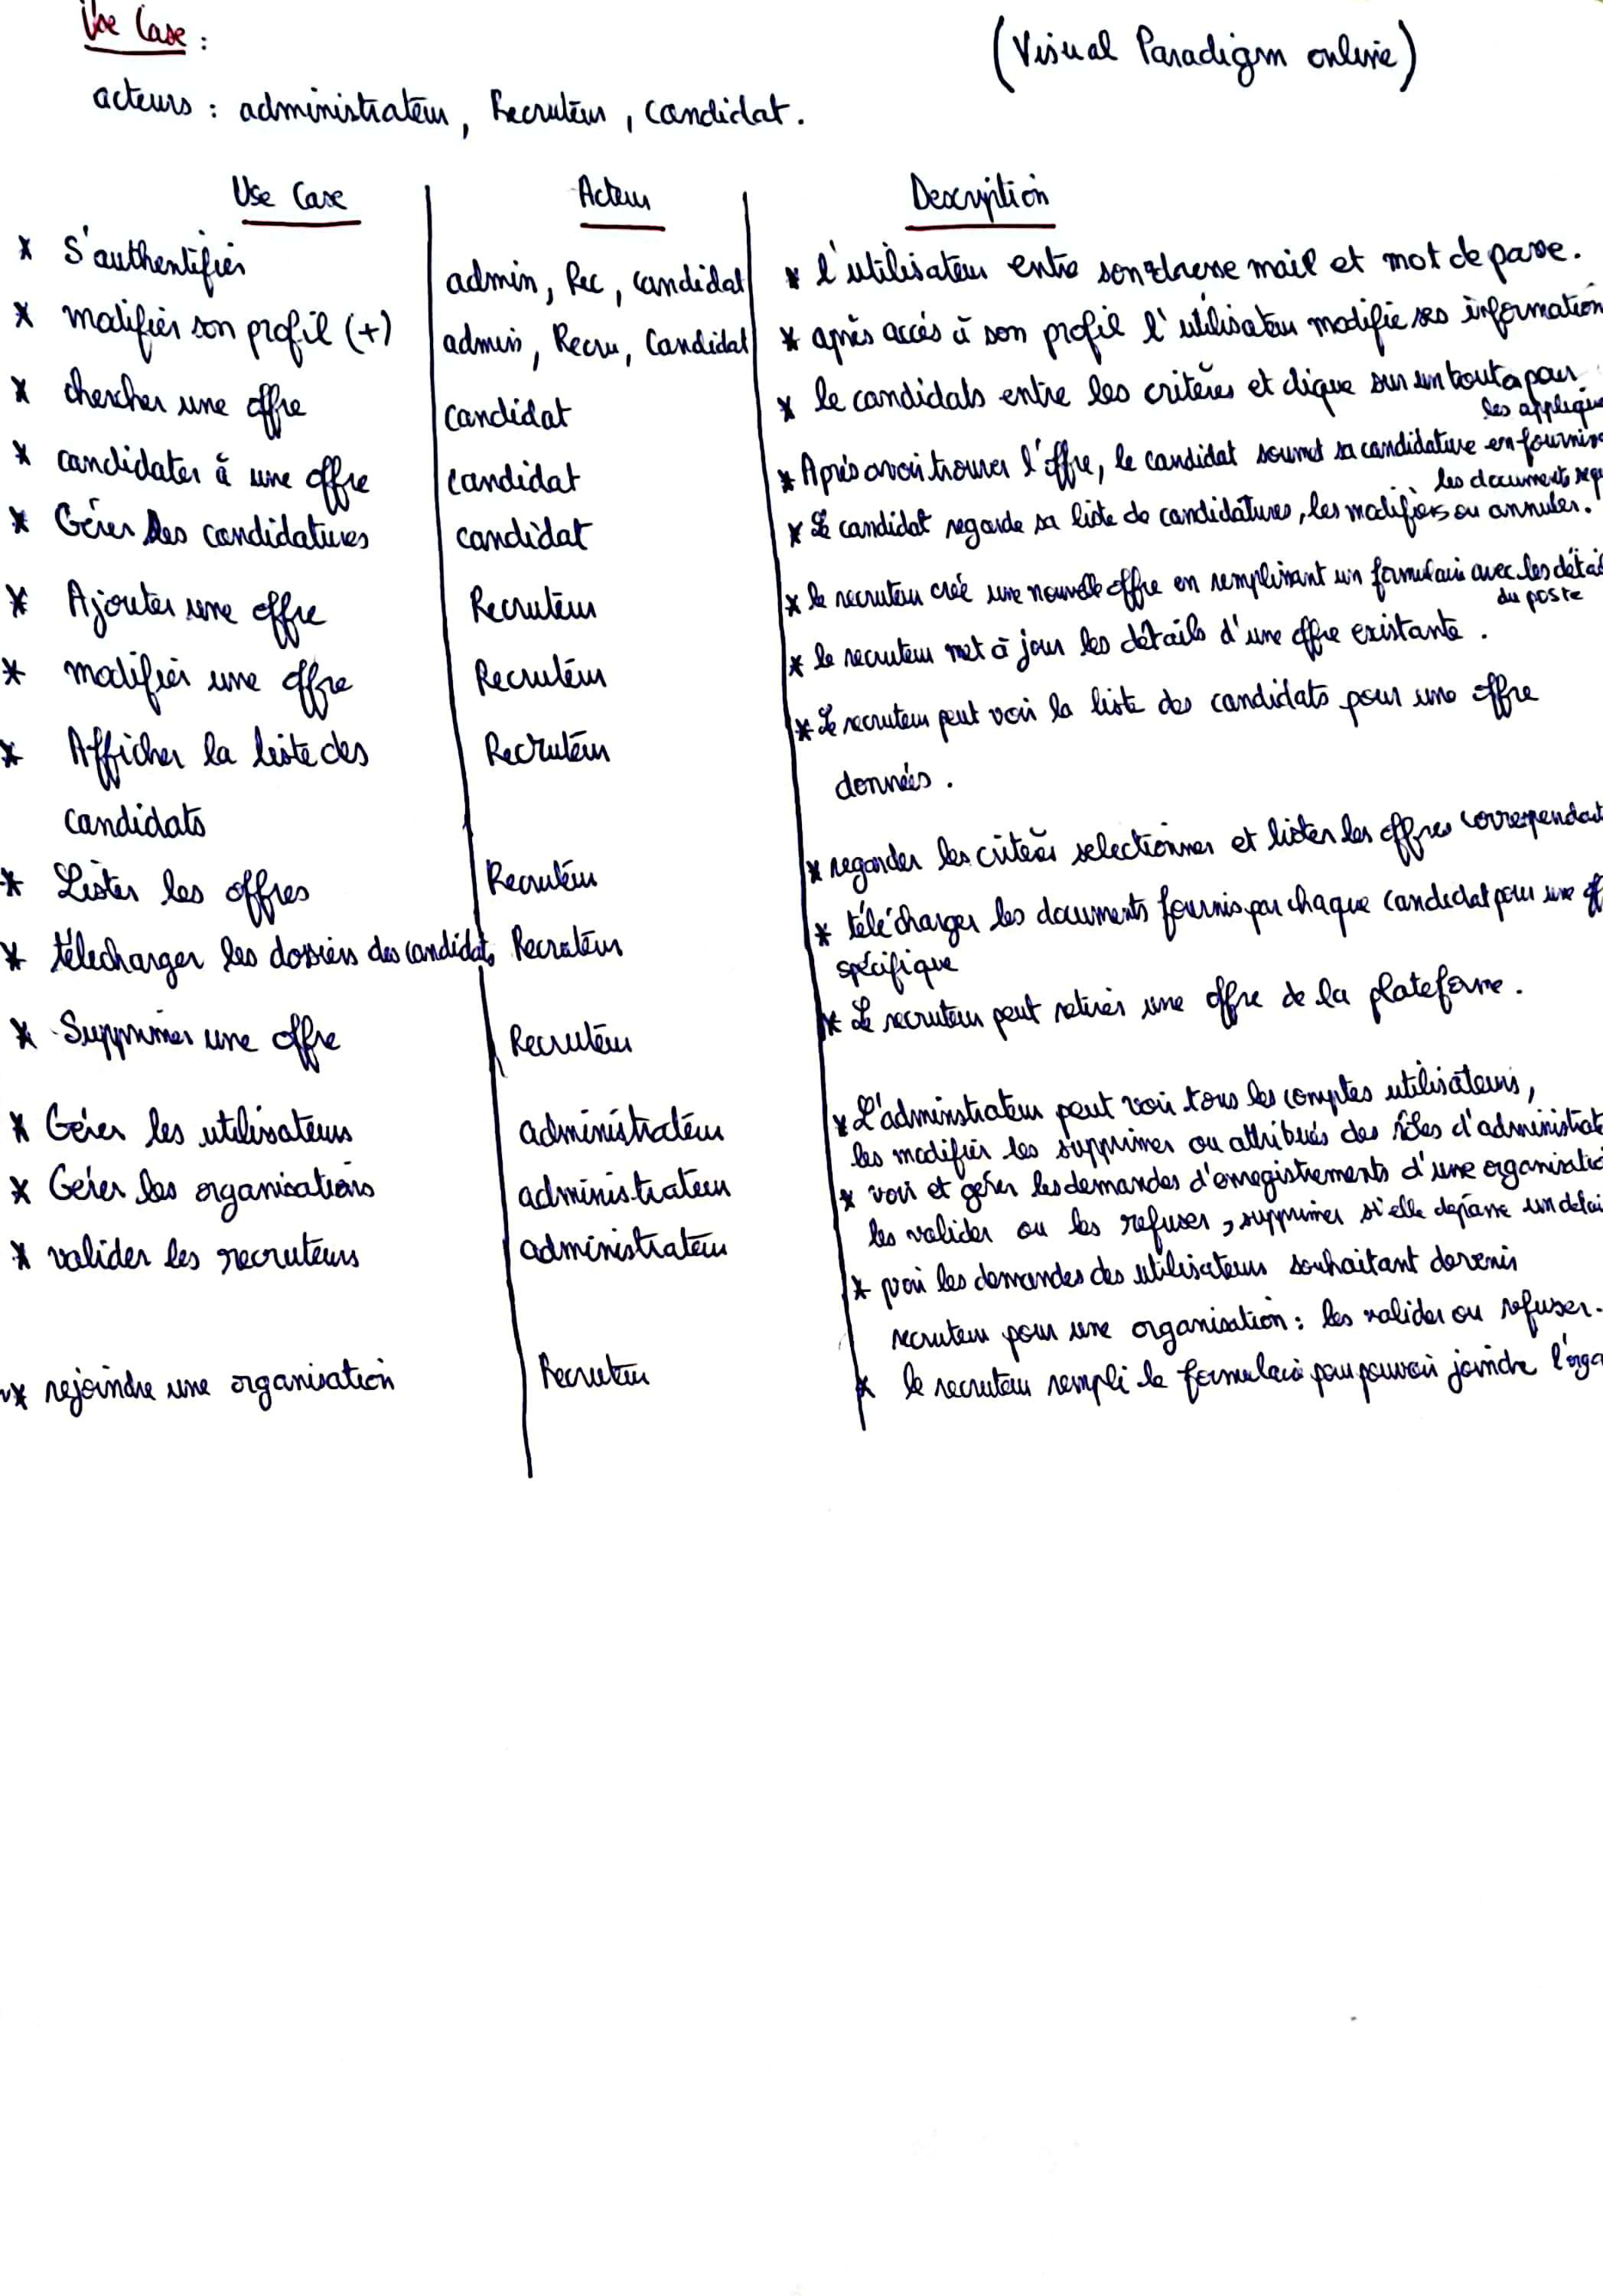 Use Case :
(Visual Paradigm online)
acteurs : administrateur, Recruteur, candidat.
Use Case | Acteur | Description
* S'authentifier | admin, Rec, candidat | * l'utilisateur entre son adresse mail et mot de passe.
* modifier son profil (+) | admin, Recru, Candidat | * après accés à son profil l'utilisateur modifie ses information
* chercher une offre | candidat | * le candidats entre les critères et clique sur un bouton pour
les applique
* candidater à une offre | candidat | * Après avoir trouver l'offre, le candidat soumet sa candidature en fournis
les documents req
* Gérer les candidatures | candidat | * Le candidat regarde sa liste de candidatures, les modifiers ou annuler.
* Ajouter une offre | Recruteur | * le recruteur créé une nouvelle offre en remplissant un formulaire avec les détai
du poste
* modifier une offre | Recruteur | * le recruteur met à jour les détails d'une offre existante.
* Afficher la liste des | Recruteur | * Le recruteur peut voir la liste des candidats pour une offre
candidats | données.
* Lister les offres | Recruteur | * regarder les critères selectionner et lister les offres correspondant
* télecharger les dossiers des candidats | Recruteur | * télécharger les documents fournis par chaque candidat pour une off
spécifique
* Supprimer une offre | Recruteur | * Le recruteur peut retirer une offre de la plateforme.
* Gérer les utilisateurs | administrateur | * L'adminstrateur peut voir tous les comptes utilisateurs,
les modifier les supprimer ou attribués des rôles d'administrat
* Gérer les organisations | administrateur | * voir et gérer les demandes d'enregistrements d'une organisatio
les valider ou les refuser, supprimer si elle dépasse un délai
* valider les recruteurs | administrateur | * voir les demandes des utilisateurs souhaitant devenir
recruteur pour une organisation : les valider ou refuser.
* rejoindre une organisation | Recruteur | * le recruteur rempli le formulaire pour pouvoir joindre l'orga